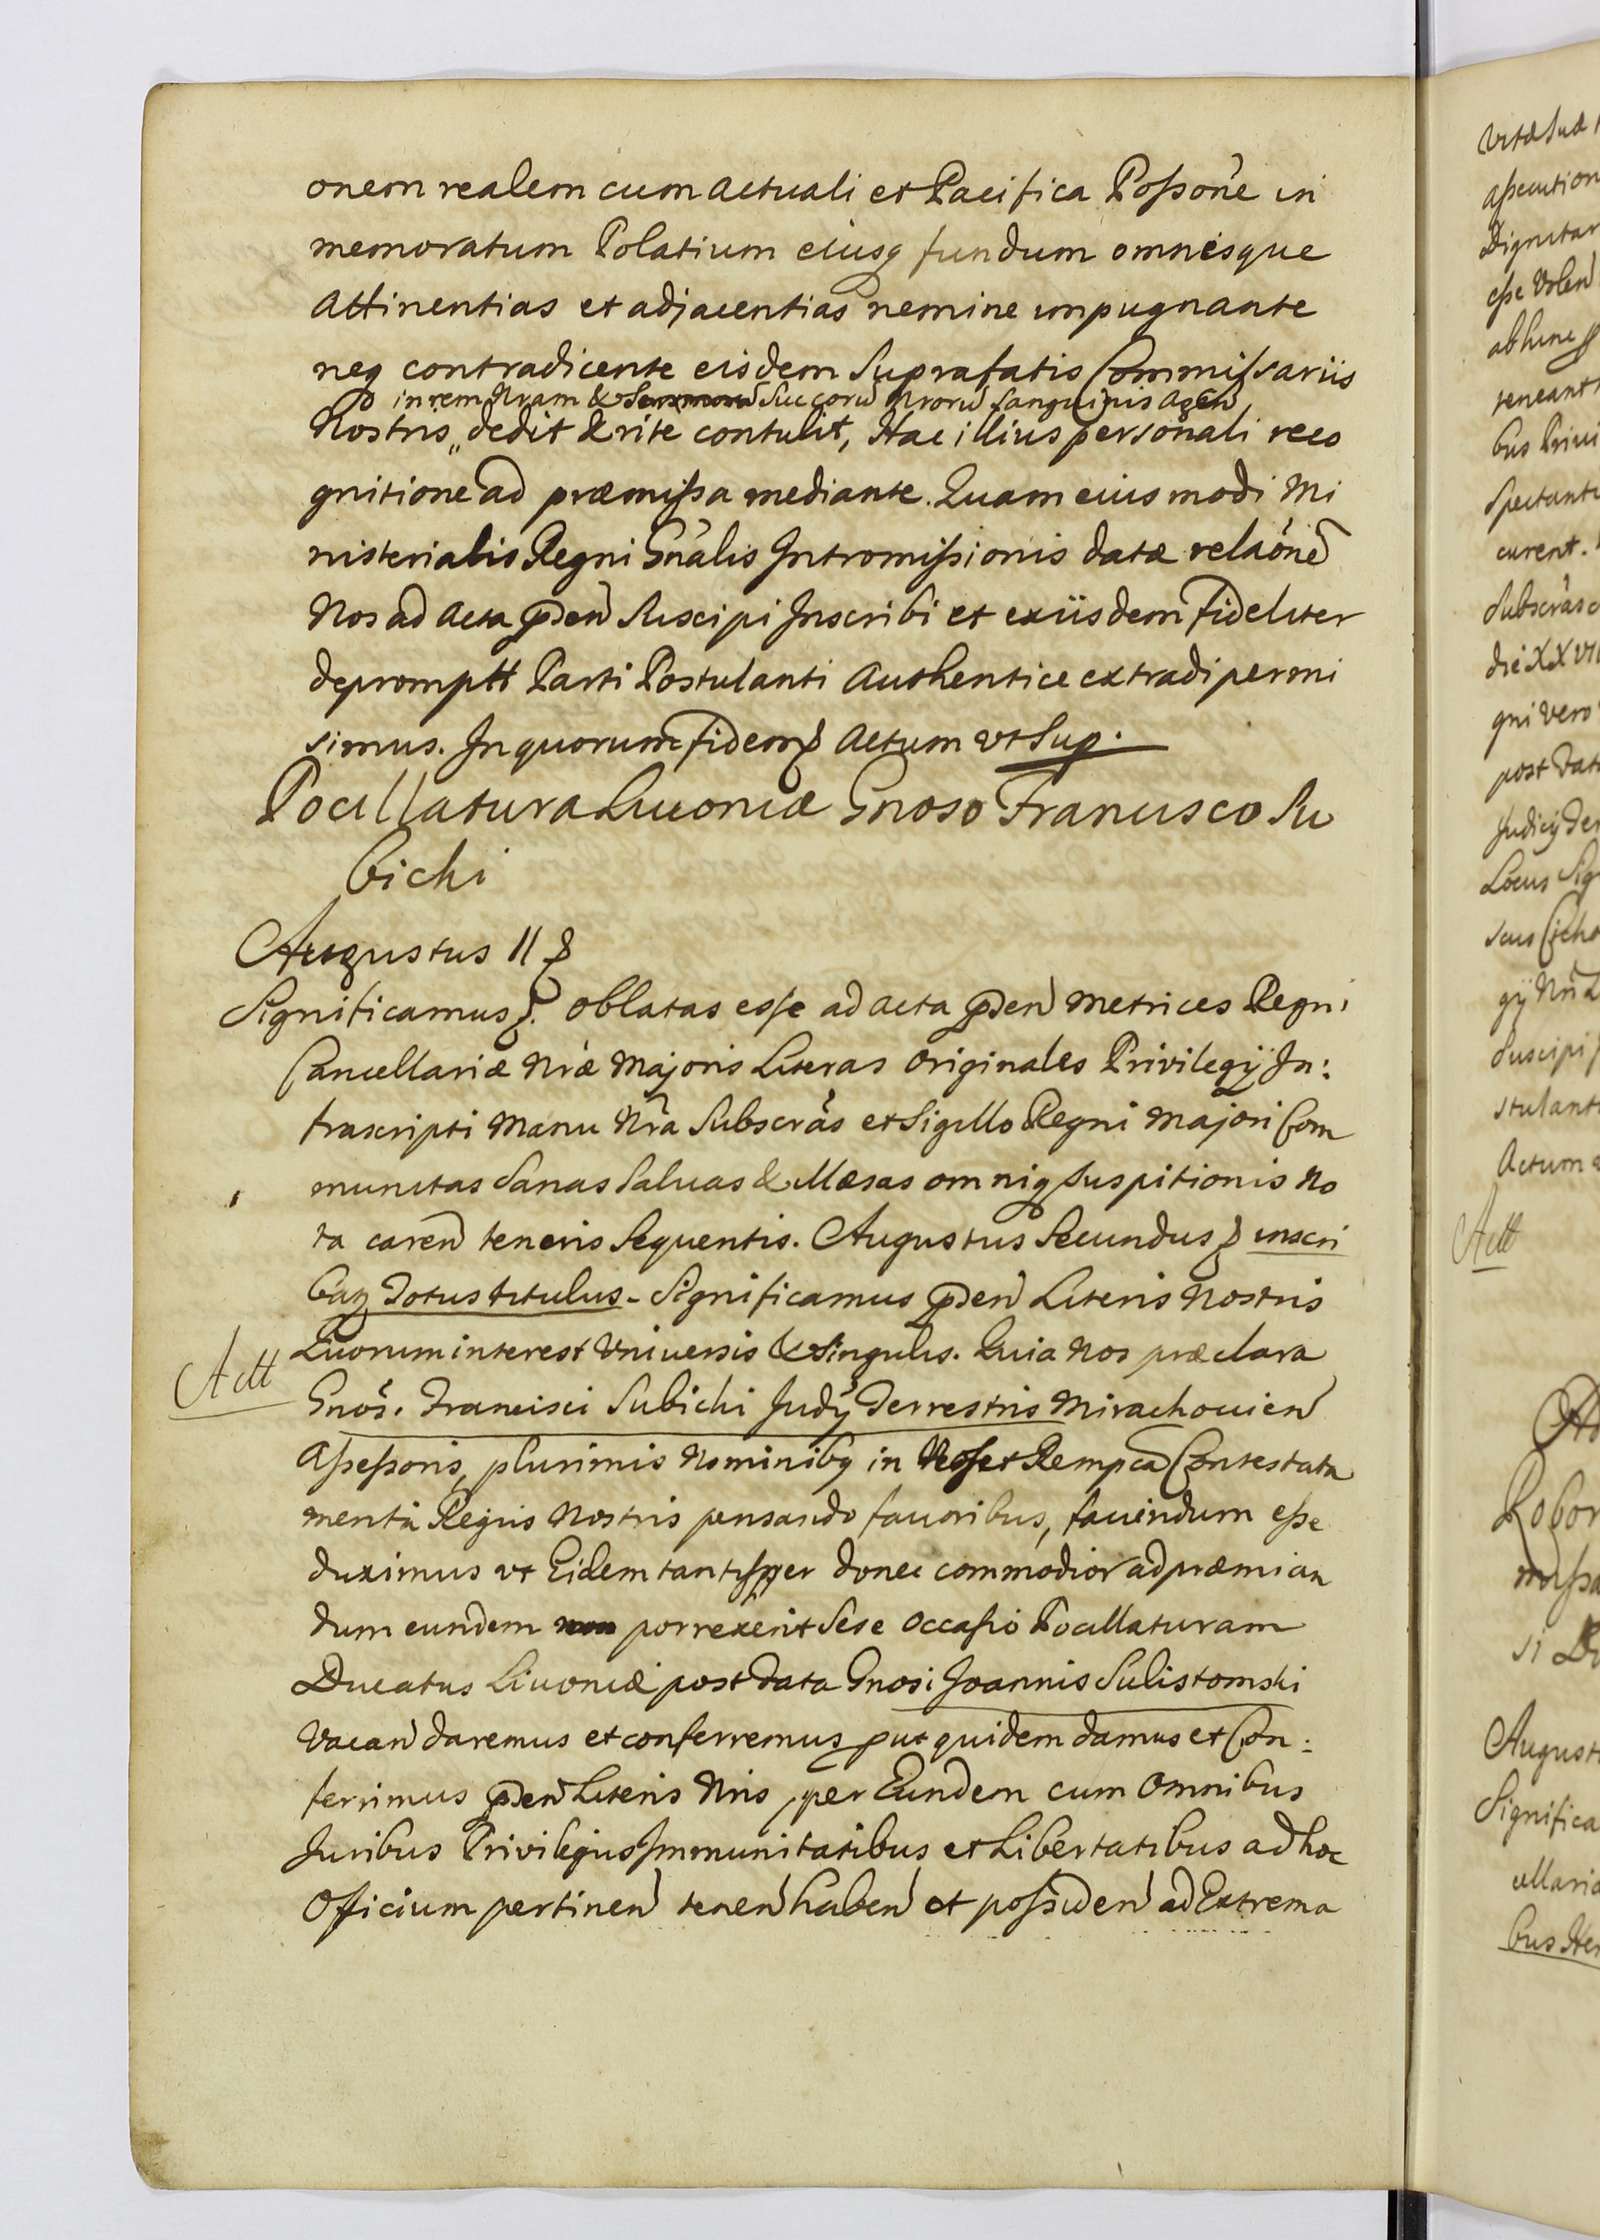 onem realem cum actuali et Pacifica Poßone in
memoratum Polatium eiusq fundum omnesque
attinentias et adjacentias nemine impugnante
neq contradicente eisdem Suprafatis Commissariis
in rem Nram & Succorū Nrorū Sanguinis agen
Nostris „ dedit & rite contulit, Hac illius personali reco
gnitione ad præmißa mediante. Quam eiusmodi Mi
nisterialis Regni Gnalis Intromißionis datæ relaone
Nos ad Acta pden Suscipi Inscribi et exiisdem fideliter
deprompt Parti Postulanti Authentice extradi permi
simus. In quorum fidem Actum vt Sup.
Pocillatura Liuoniæ Gnoso Francisco Su
bichi
Augustus II
Significamus oblatas esse ad acta pden Metrices Regni
Cancellariæ Nræ Majoris Literas Originales Privilegij In:
frascripti Manu Nra Subscras et Sigillo Regni Majori Com
munitas Sanas Saluas & Illæsas omniq Suspitionis No
ta caren teneris Sequentis. Augustus Secundus inscri
batz Totus titulus - Significamus pden Literis Nostris
Quorum interest Vniuersis & Singulis. Quia Nos præclara
Actt
Gnos. Francisci Subichi Judÿ Terrestris Mirachouien
Aßeßoris, plurimis Nominibq in Nos et Rempca Contestata
merita Regiis Nostris pensando fauoribus, fauendum eße
duximus vt Eidem tantisper donec commodior ad præmian
dum eundem porrexerit Sese Occasio Pocillaturam
Ducatus Liuoniæ post data Gnosi Joannis Sulistomski
Vacan daremus et conferremus put quidem damus et Con:
ferimus pden Literis Nris, per Eundem cum Omnibus
Juribus Privilegiis Immunitatibus et Libertatibus ad hoc
Officium pertinen tenen haben et poßiden ad Extrema